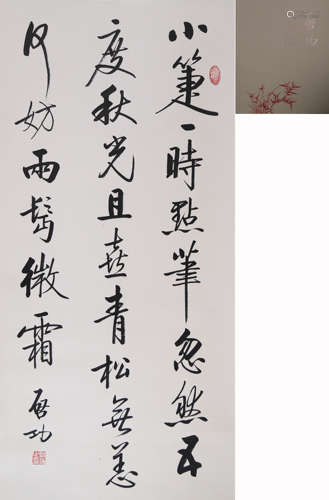 小箑一時點筆忽然五
度秋光且喜青松無恙
何妨兩鬢微霜 啟功